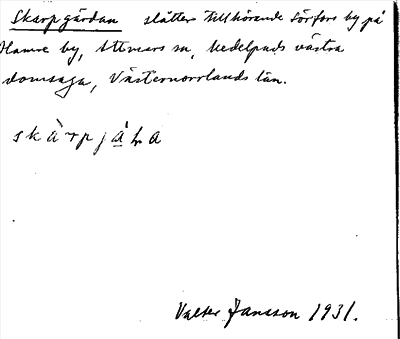 Skarpgärdan slåtter tillhörande Sörfors by på
Hamre by, Attmars sn, Medelpads västra
domsaga, Västernorrlands län.
skàrpjáɽa
Valter Jansson 1931.